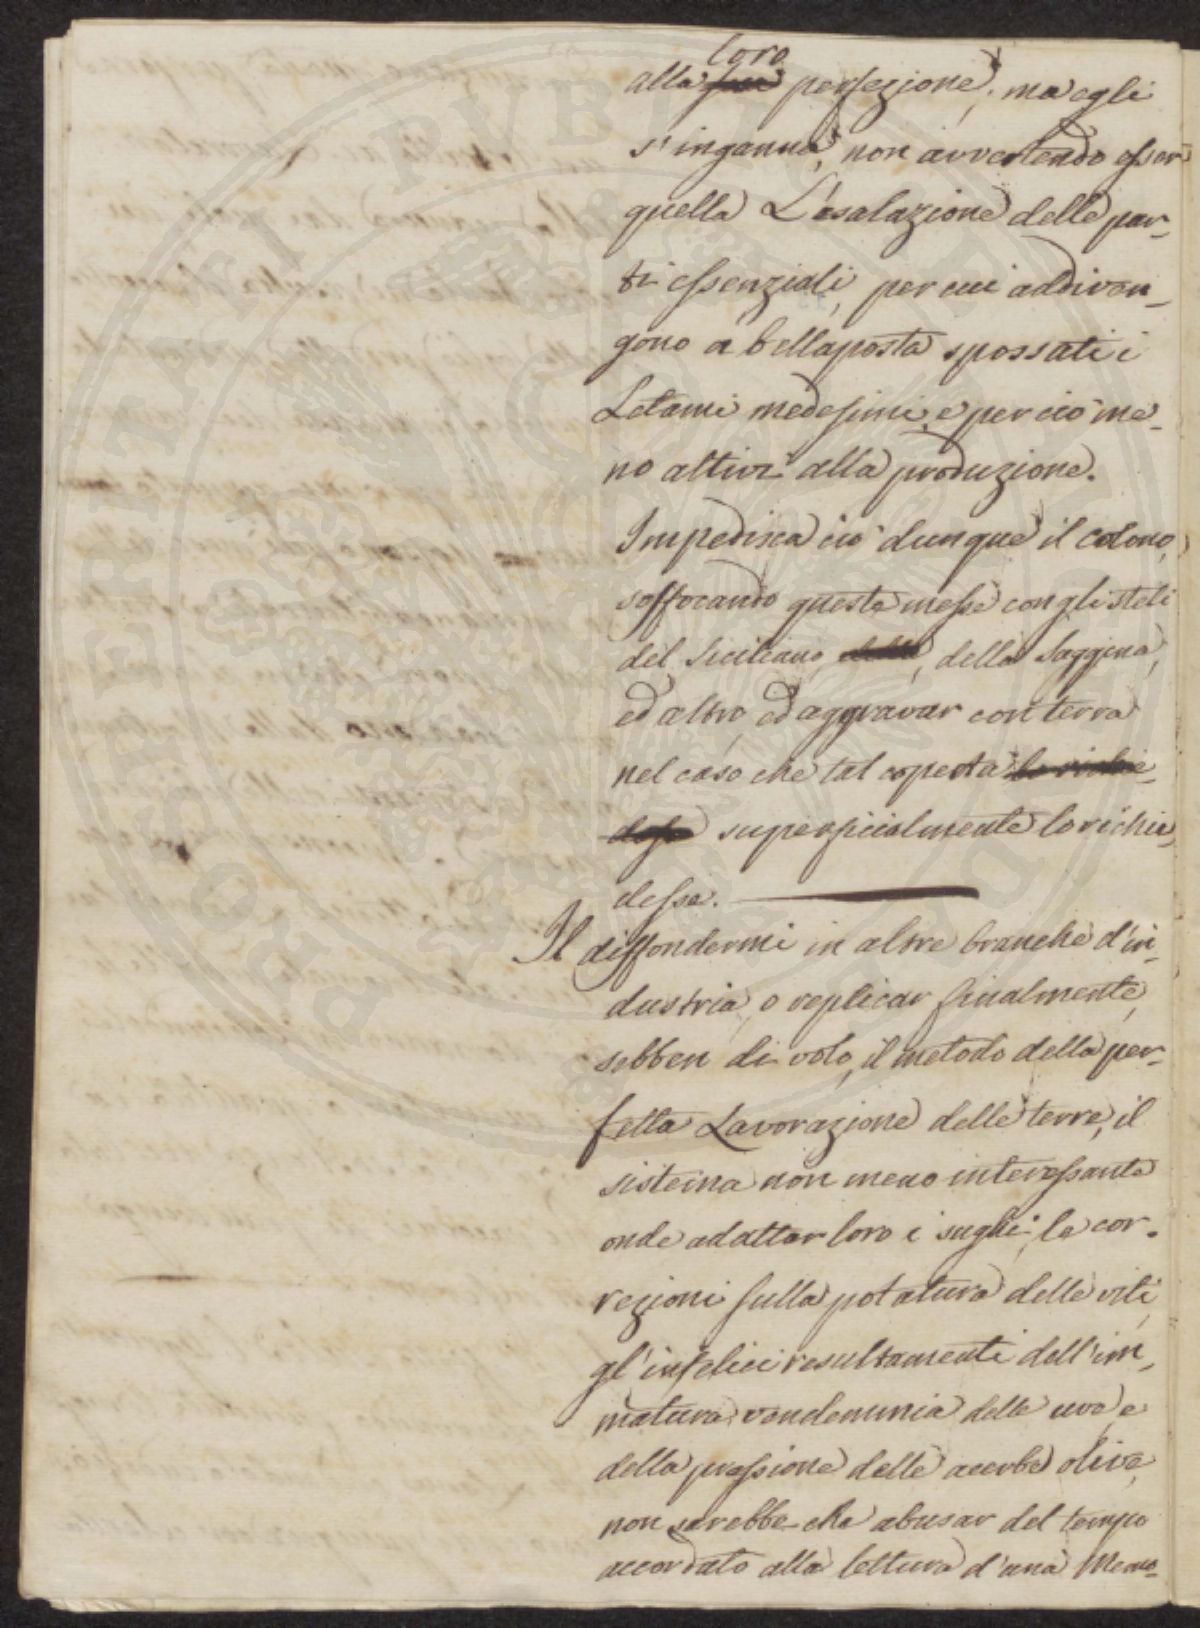 loro
alla sua perfezione; ma egli
s'inganna, non avvertendo esser
quella L'esalazione delle par-
ti essenziali, per cui addiven-
gono a bellaposta spossati i
Letami medesimi, e per ciò me-
no attivi alla produzione.
Impedisca ciò dunque il colono,
soffocando queste messe con gli steli
del Siciliano, della, della Saggina,
ed altro, ed aggravar con terra
nel caso che tal coperta lo richie-
desse superficialmente lo richie-
desse.
Il diffondermi in altre branche d'in-
dustria, o replicar finalmente,
sebben di volo, il metodo della per-
fetta Lavorazione delle terre, il
sistema non meno interessante
onde adattar loro i sughi, le cor-
rezioni sulla potatura delle viti,
gl'infelici resultamenti dell'im-
matura vendemmia delle uve, e
della pressione delle acerbe olive,
non sarebbe che abusar del tempo
accordato alla lettura d'una Memo-